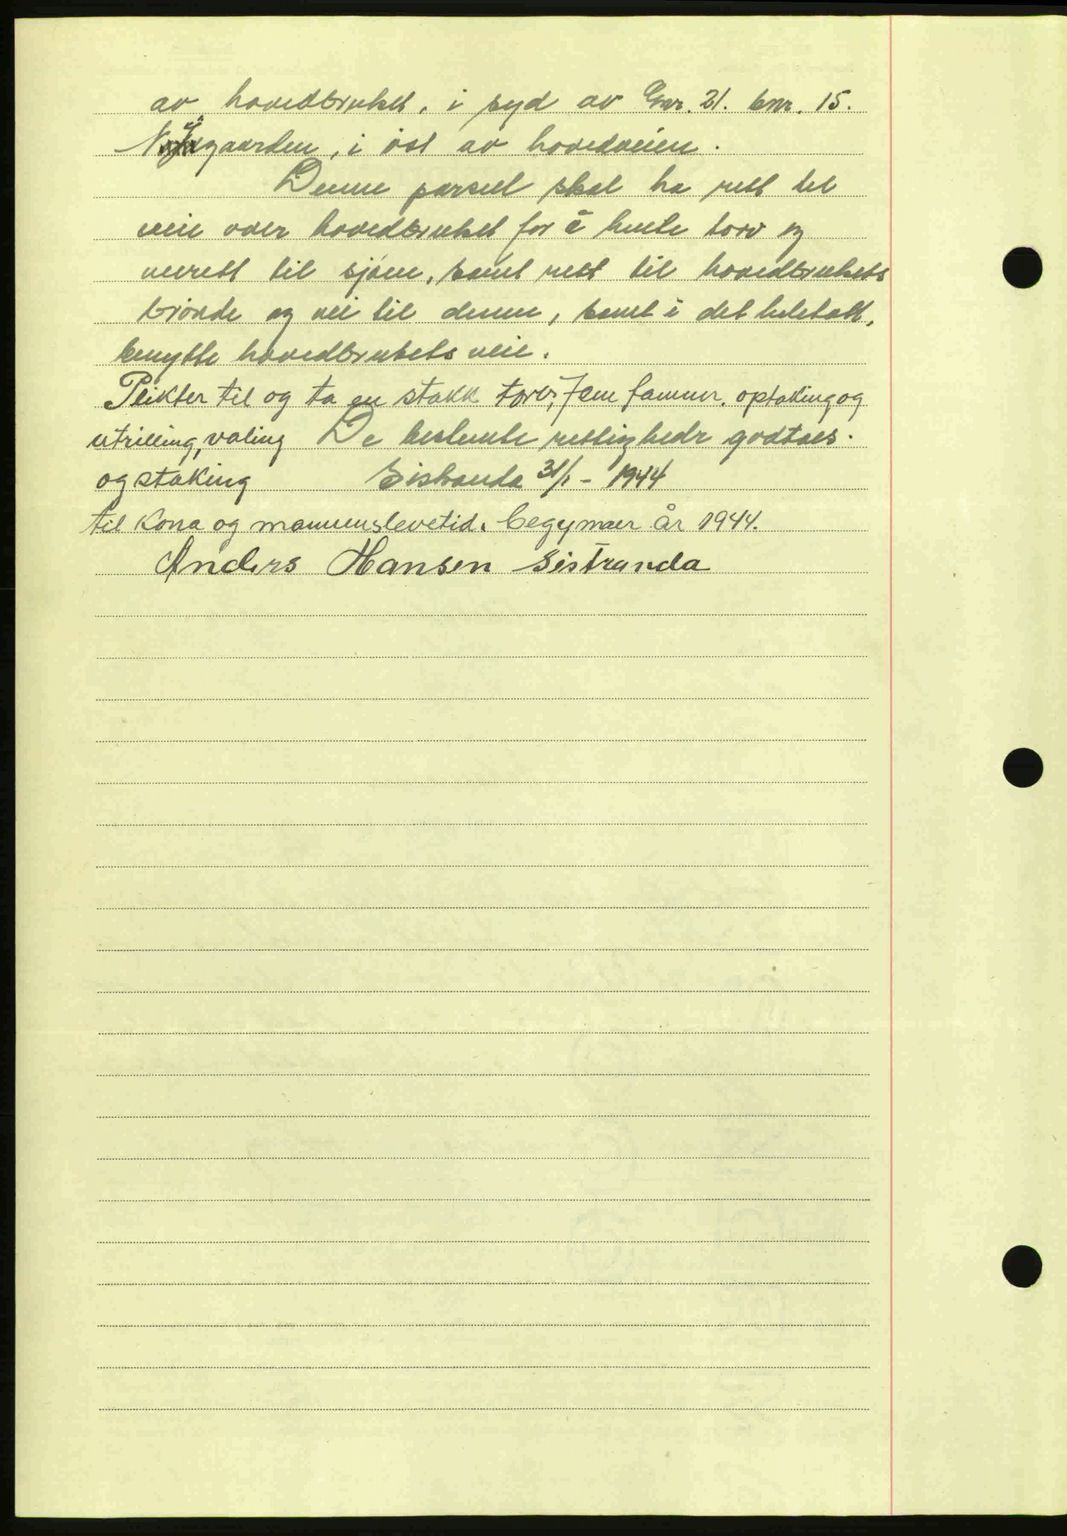 av hovedbruket, i syd av Gnr. 21. bnr. 15.
gaarden, i øst av hovedveien.
Denne parsel skal ha rett til
veie over hovedbruket for å hente torv og
veirett til sjøen, samt rett til hovedbrukets
brønde og vei til denne, samt i det heletatt,
benytte hovedbrukets veie.
Plikter til og ta en stakk torv, fem famner, optaking og
utrilling, valing De bestemte rettighedr godtaes.
og staking Sistranda 31/1 - 1944
til kona og mannenslevetid. begynner år 1944.
Anders Hansen Sistranda